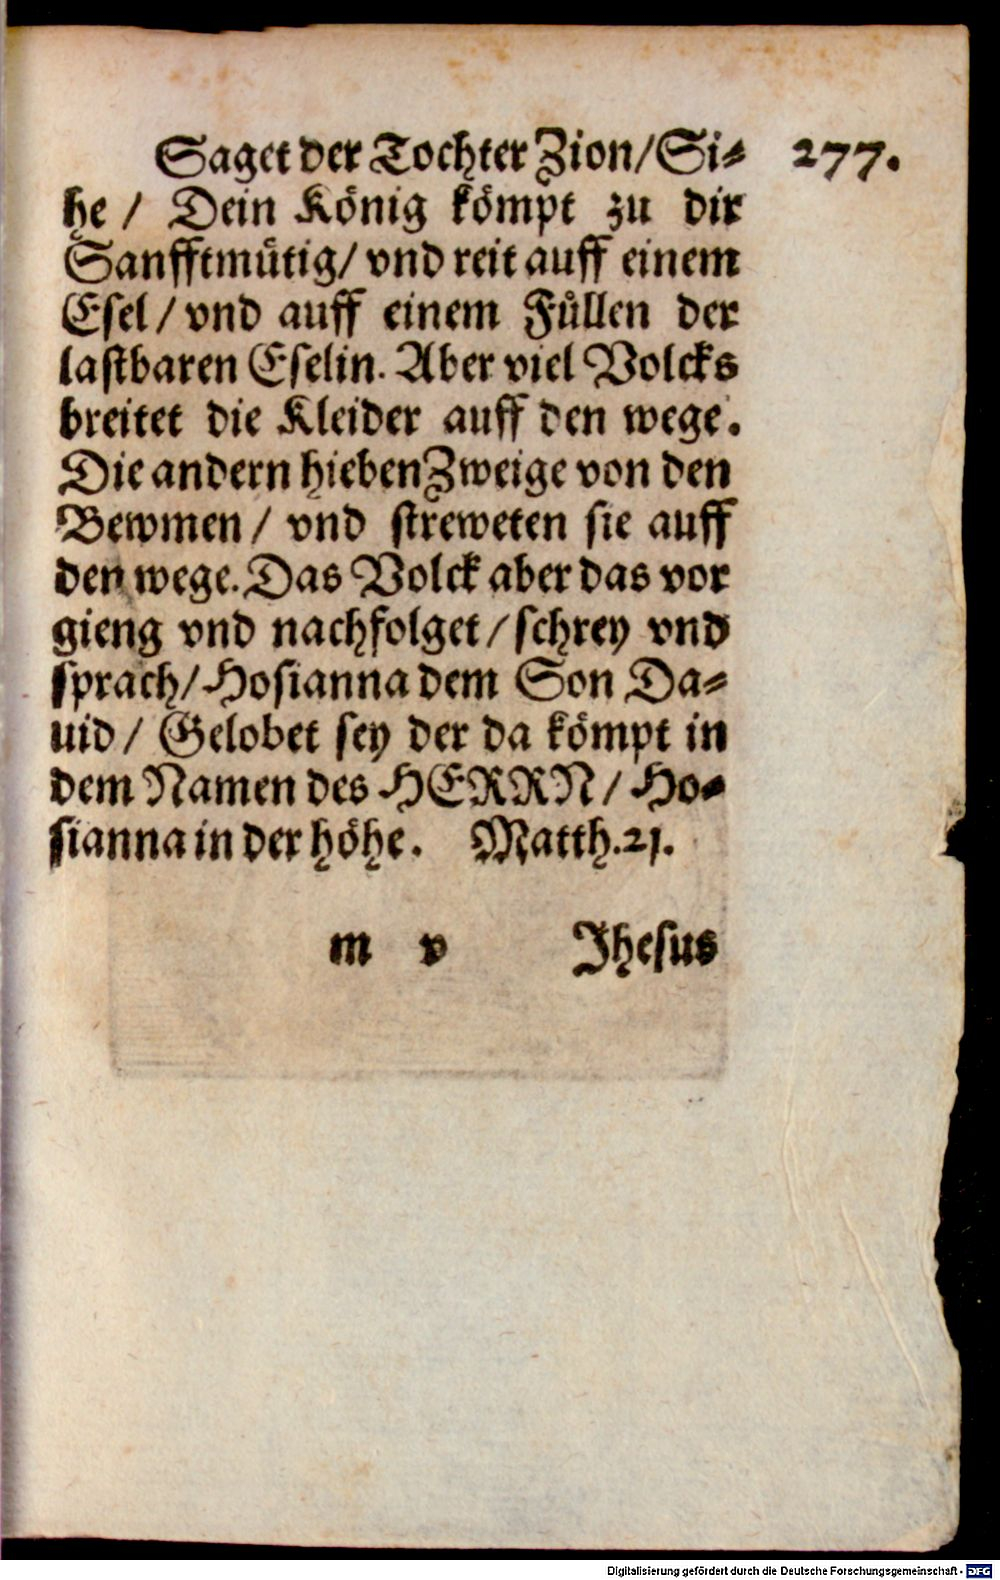 Saget der Tochter Zion/ Si⸗ 277.
he / Dein König kömpt zu dir
Sanfftmütig/ vnd reit auff einem
Esel / vnd auff einem Füllen der
lastbaren Eselin. Aber viel Volcks
breitet die Kleider auff den wege.
Die andern hieben Zweige von den
Bewmen / vnd streweten sie auff
den wege. Das Volck aber das vor
gieng vnd nachfolget / schrey vnd
sprach/ Hosianna dem Son Da⸗
uid / Gelobet sey der da kömpt in
dem Namen des HERRN / Ho⸗
sianna in der höhe. Matth. 21.
m v Jhesus
Digitalisierung gefördert durch die Deutsche Forschungsgemeinschaft - DFG